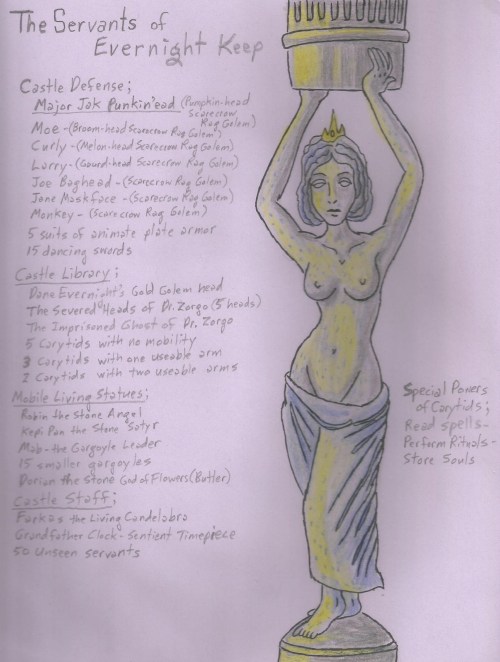 The Servants of
Evernight Keep
Castle Defense;
Major Jak Punkin'ead (Pumpkin-head
Scarecrow
Rag Golem)
Moe - (Broom-head Scarecrow Rag Golem)
Curly - (Melon-head Scarecrow Rag Golem)
Larry - (Gourd-head Scarecrow Rag Golem)
Joe Baghead - (Scarecrow Rag Golem)
Jane Maskface - (Scarecrow Rag Golem)
Monkey - (Scarecrow Rag Golem)
5 suits of animate plate armor
15 dancing swords
Castle Library;
Dana Evernight's Gold Golem head
The Severed Heads of Dr. Zorgo (5 heads)
The Imprisoned Ghost of Dr. Zorgo
5 Carytids with no mobility
3 Carytids with one useable arm
2 Carytids with two useable arms
Mobile Living Statues;
Robin the Stone Angel
Pan the Stone Satyr
Mab - the Gargoyle Leader
15 smaller gargoyles
Dorian the Stone God of Flowers (Butler)
Castle Staff;
Farkas the Living Candelabra
Grandfather Clock - Sentient Timepiece
50 Unseen servants
Special Powers
of Carytids;
Read spells -
Perform Rituals -
Store Souls